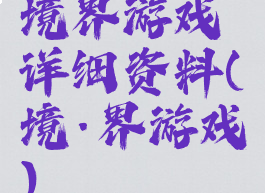 境界游戏
详细资料(
境·界游戏
)